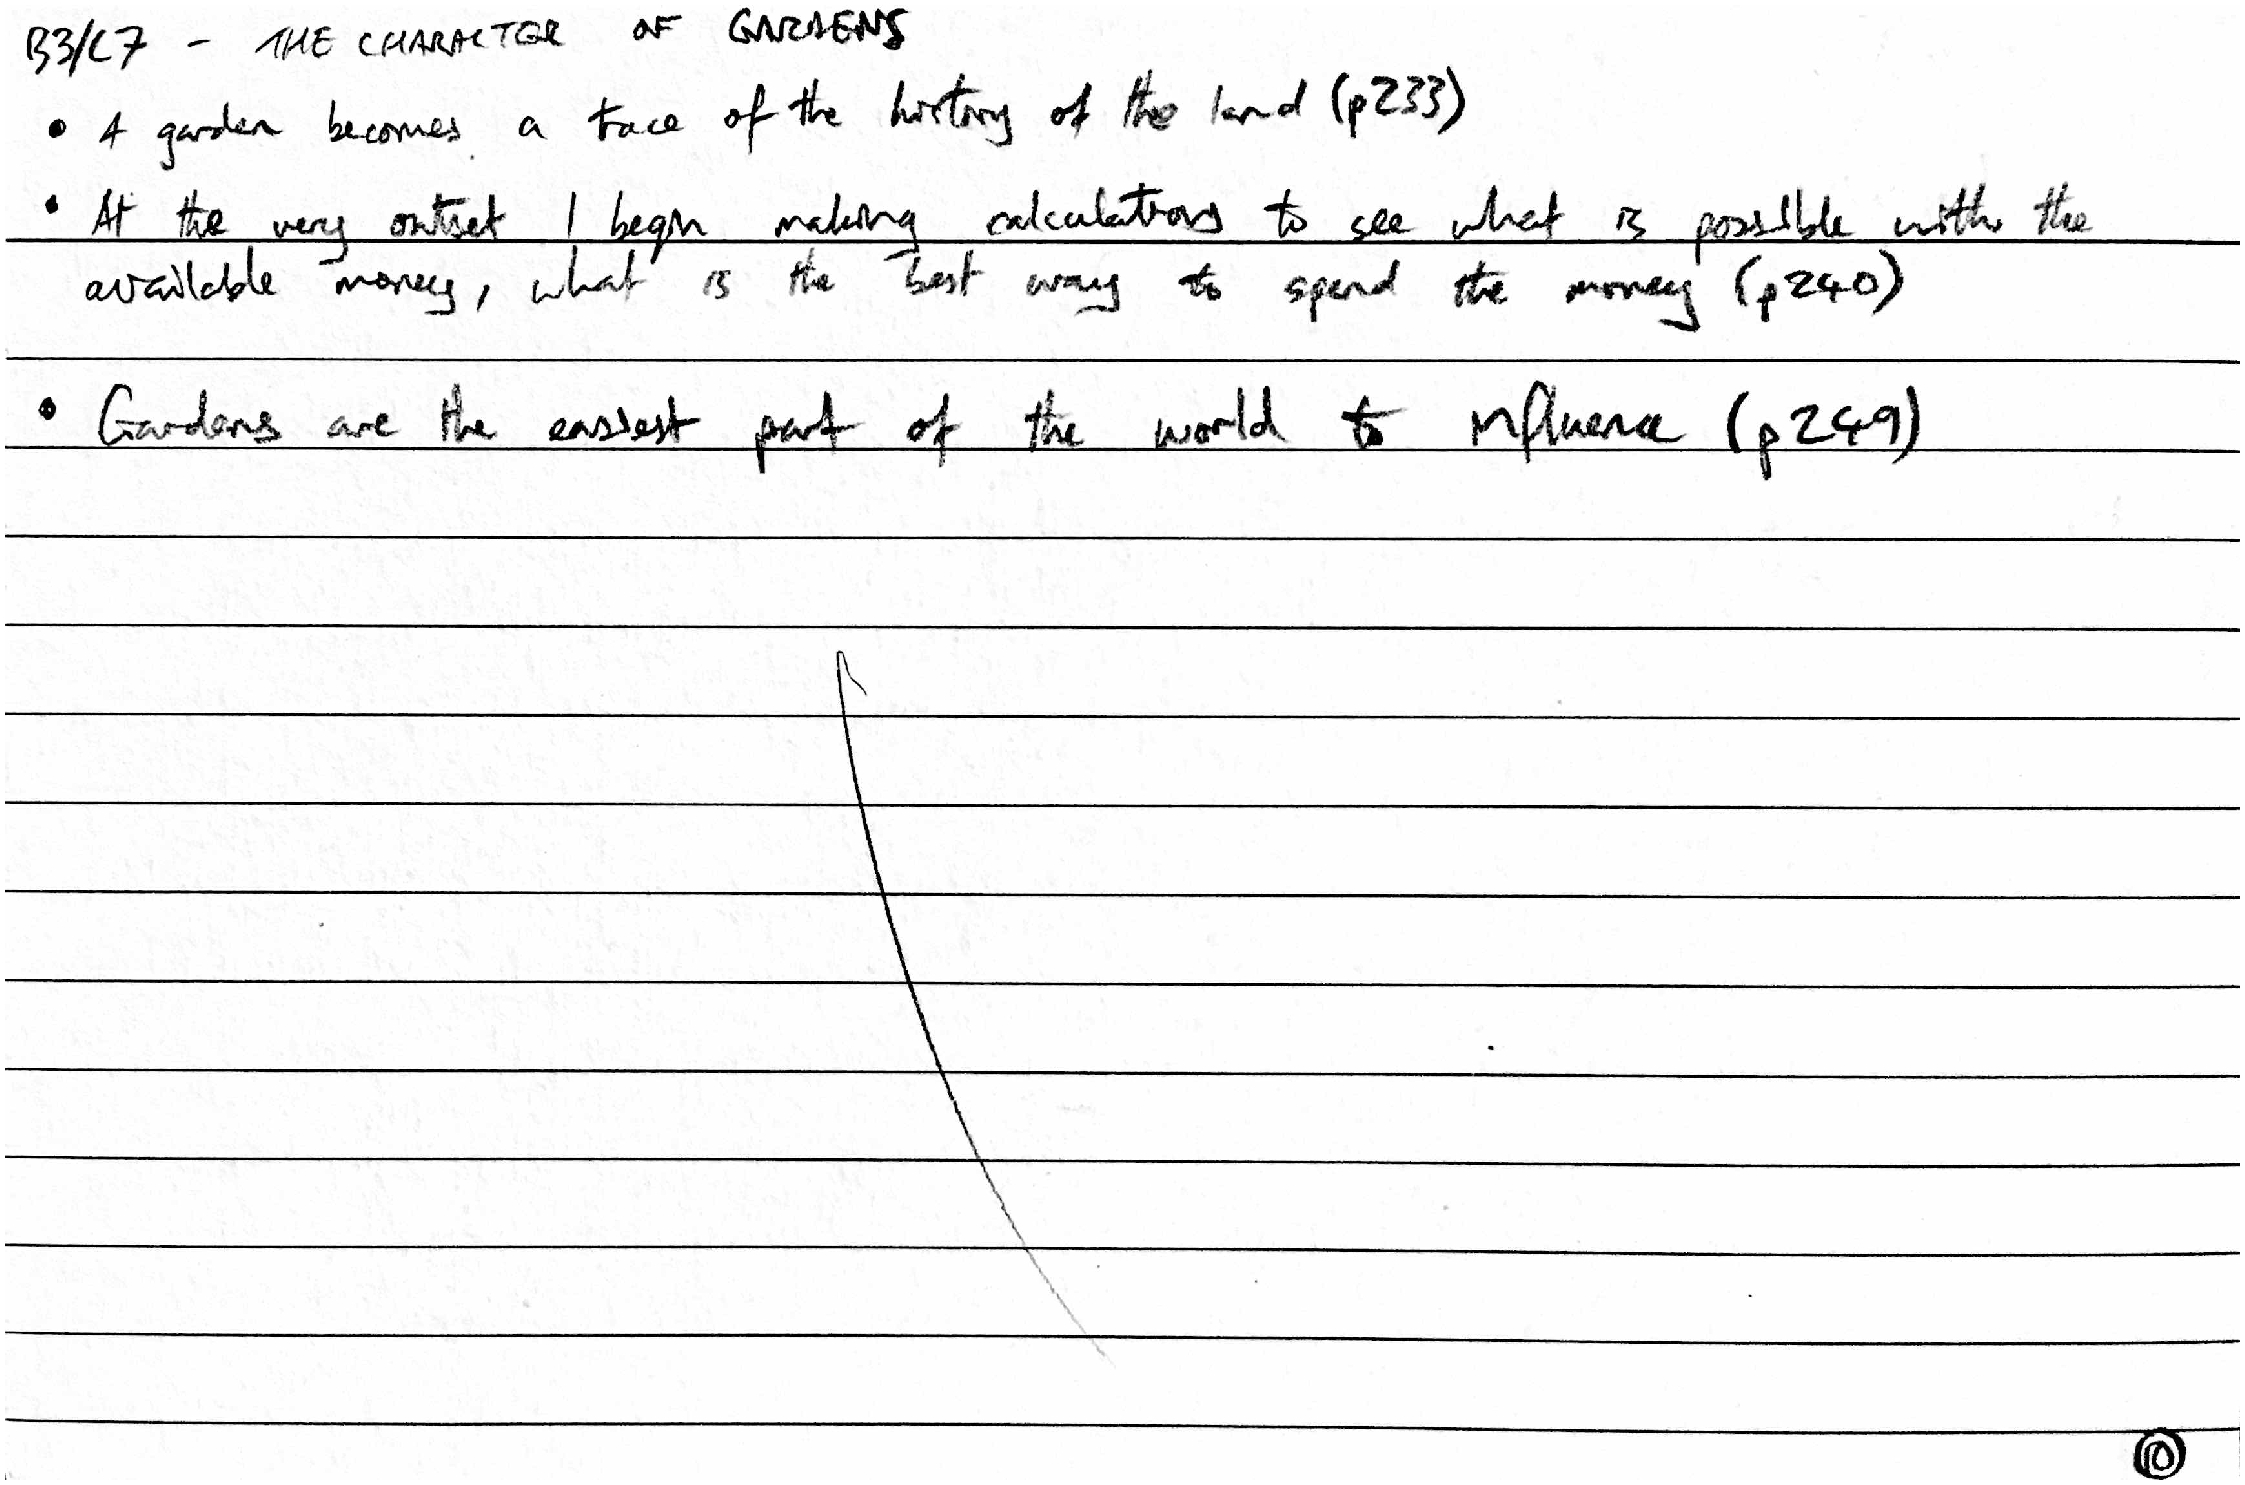 B3/C7 - THE CHARACTER OF GARDENS
• A garden becomes a trace of the history of the land (p233)
• At the very outset I begin making calculations to see what is possible with the
available money, what is the best way to spend the money (p240)
• Gardens are the easiest part of the world to influence (p249)
10